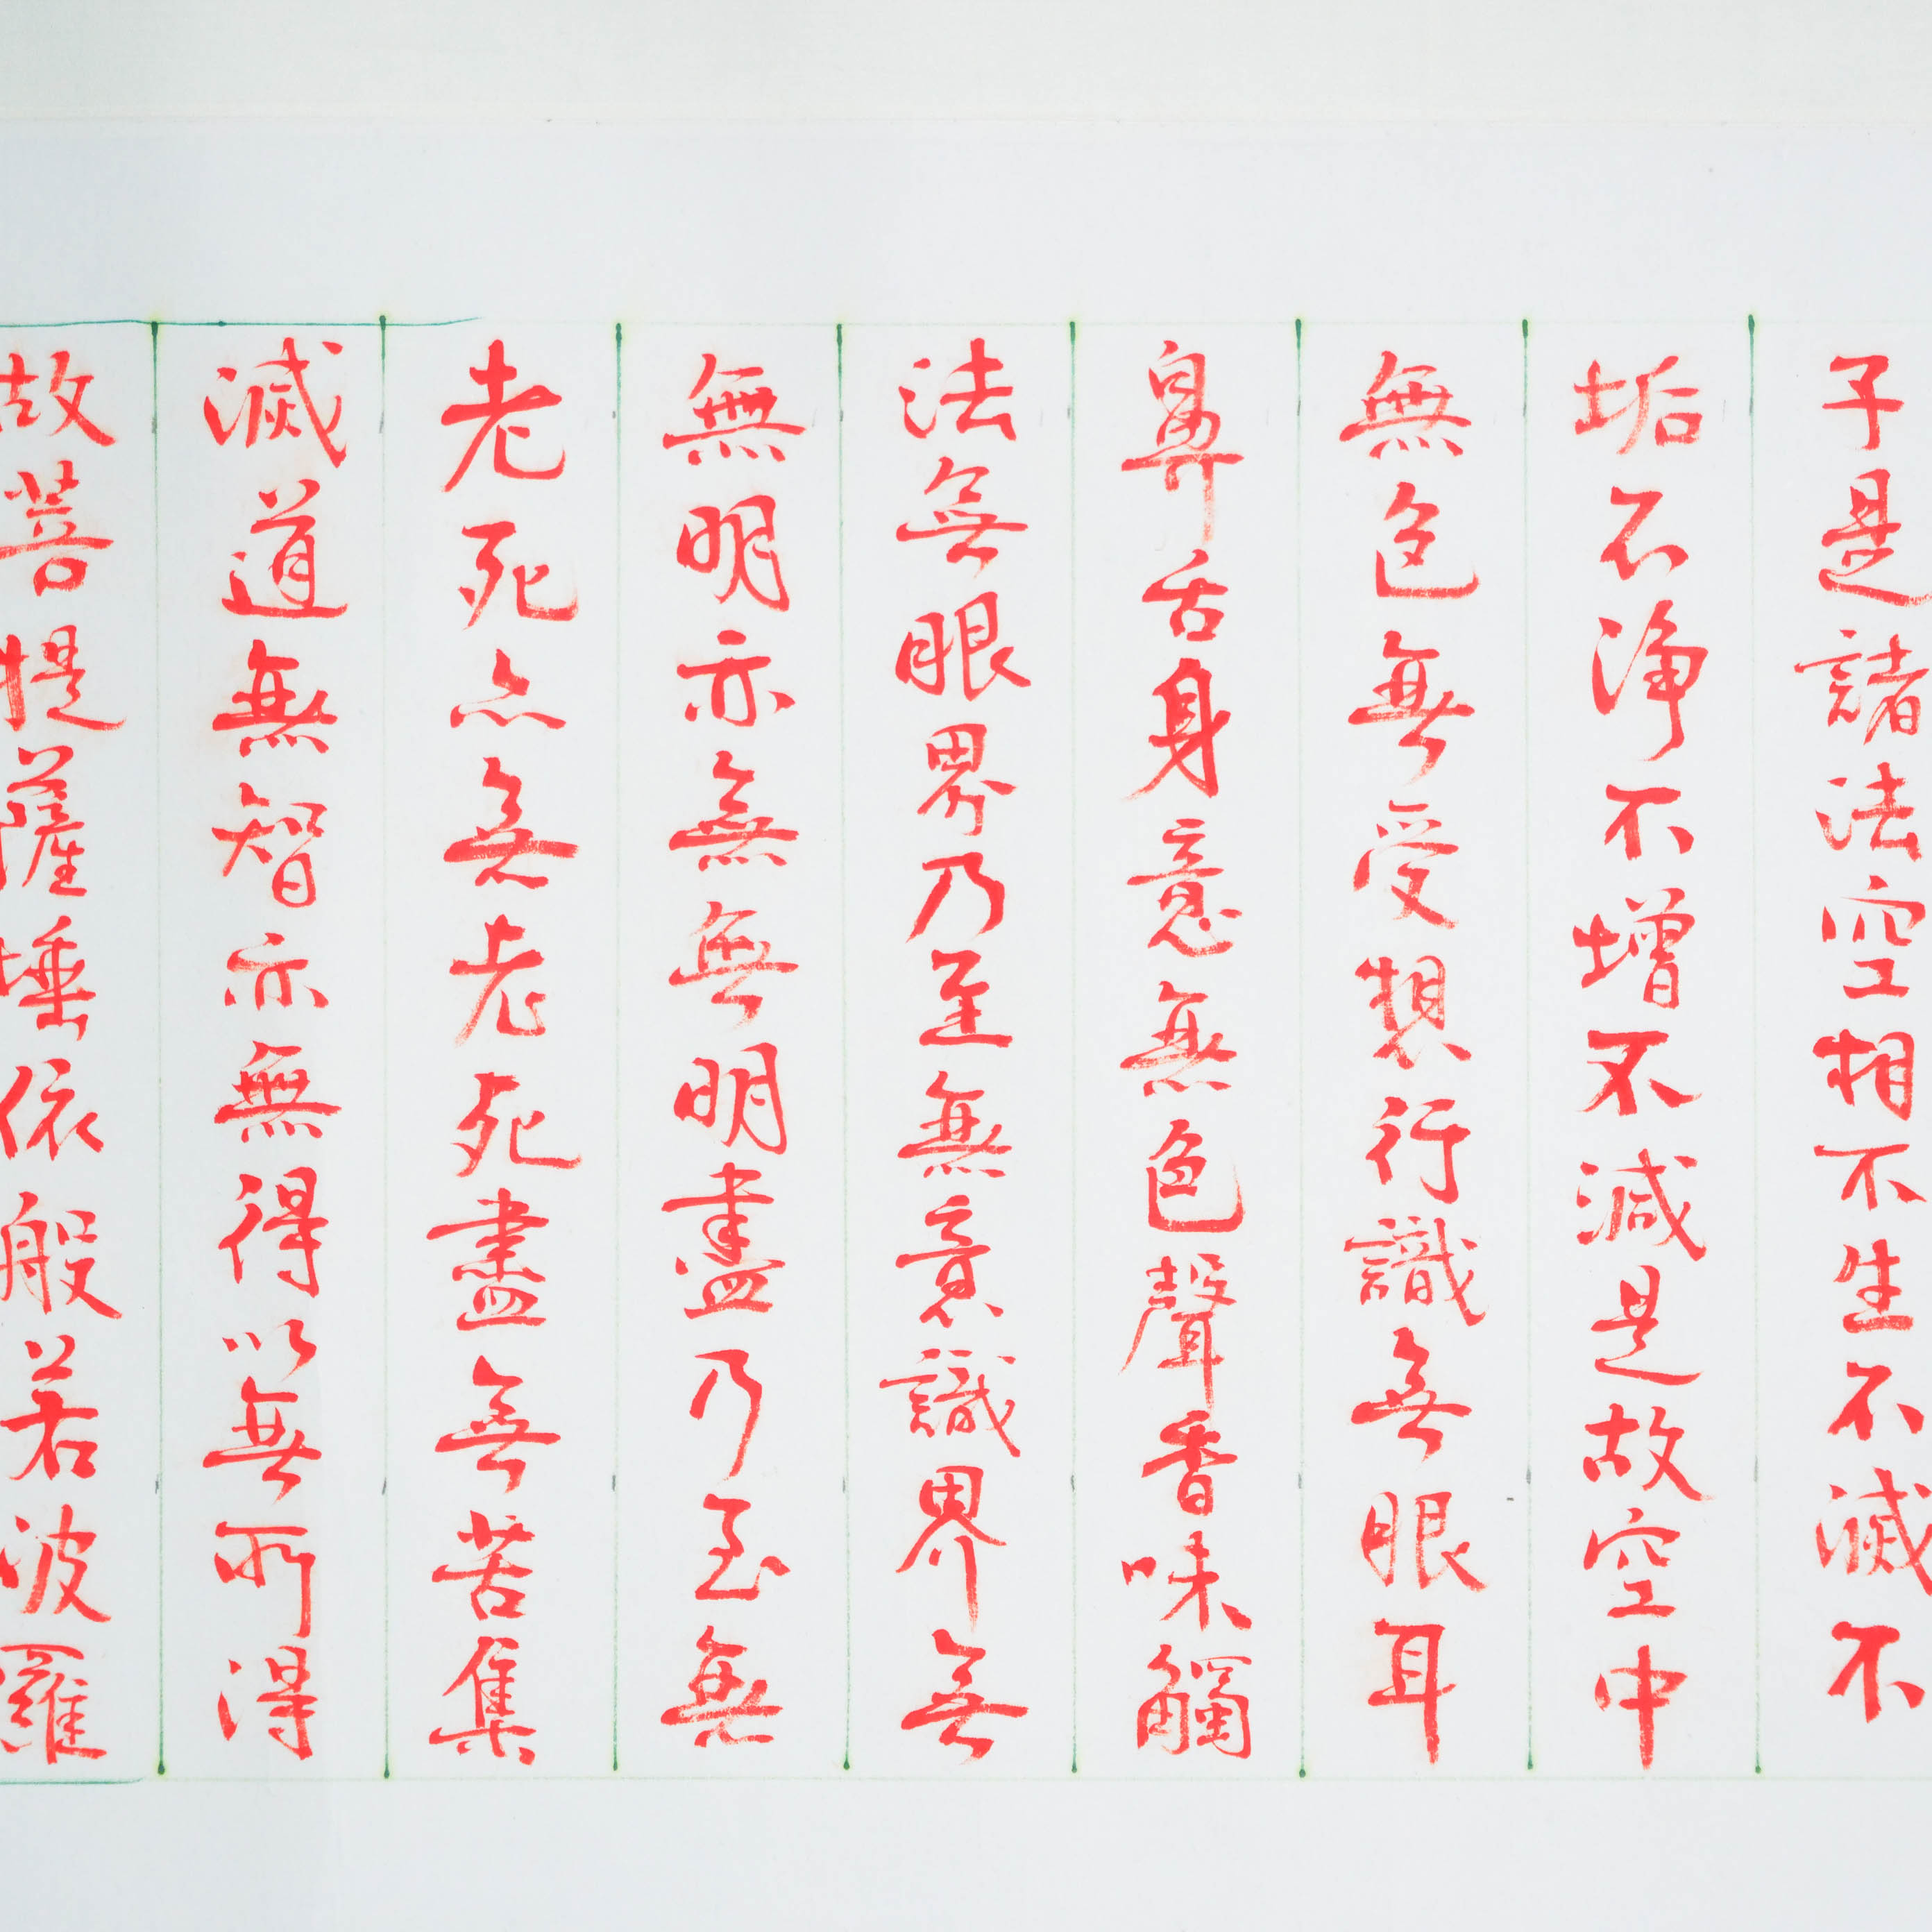 子是諸法空相不生不滅不
垢不淨不增不減是故空中
無色無受想行識無眼耳
鼻舌身意無色聲香味觸
法無眼界乃至無意識界無
無明亦無無明盡乃至無
老死亦無老死盡無苦集
滅道無智亦無得以無所得
故菩提薩埵依般若波羅